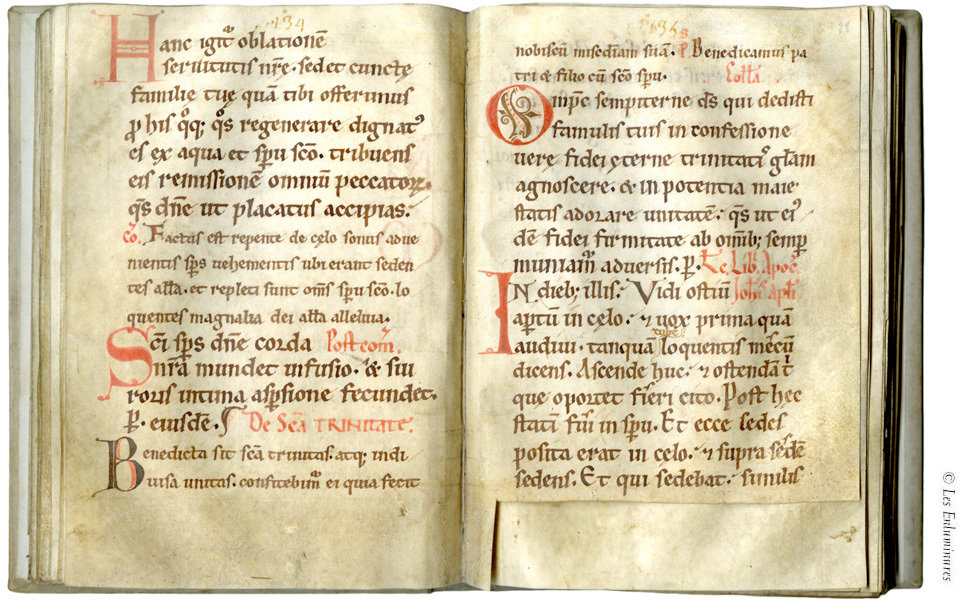 134
Hanc igit᷑ oblationē
seruitutis nr̄e · sed et cunctę
familię tuę quā tibi offerimus
ꝓ his qͦq; qͦs regenerare dignatꝰ
es ex aqua et sp̄u sc̄o · tribuens
eis remissionē omniū peccatoꝝ ·
qs̄ dn̄e ut placatus accipias ·
co. Factus est repente de cęlo sonus adue
nientis sp̄s uehementis ubi erant seden
tes all̄a · et repleti sunt om̄s sp̄u sc̄o · lo
quentes magnalia dei all̄a alleluia ·
Sc̄i sp̄s dn̄e corda Postcom̄.
nr̄a mundet infusio · & sui
roris intima asꝑsione fecundet ·
P. eiusdē · De Sc̄a TRINITATE ·
Benedicta sit sc̄a trinitas · atq; indi
uisa unitas · confitebim᷑ ei quia fecit
135
28
nobiscū mis̄ediam suā · ps. Benedicamus pa
tri & filio cū sc̄o sp̄u · Coll̄a
Omp̄c sempiterne ds̄ qui dedisti
famulis tuis in confessione
uere fidei ęterne trinitatis gl̄am
agnoscere · & in potentia maie
statis adorare unitatē · qs̄ ut eiꝰ
dē fidei firmitate ab omīb; semꝑ
muniam᷑ aduersis · P. Lc̄. Lib. Apoc̄.
IN dieb; illis · Vidi ostiū Ioh̄is ap̄li
aꝑtū in cęlo · ⁊ uox prima quā
audiui · tanquā tubę loquentis mecū
dicens · Ascende huc · ⁊ ostendā t̄
que oportet fieri cito · Post hec
statī fui in sp̄u · Et ecce sedes
posita erat in celo · ⁊ supra sedē
sedens · Et qui sedebat · similis
© Les Enluminures